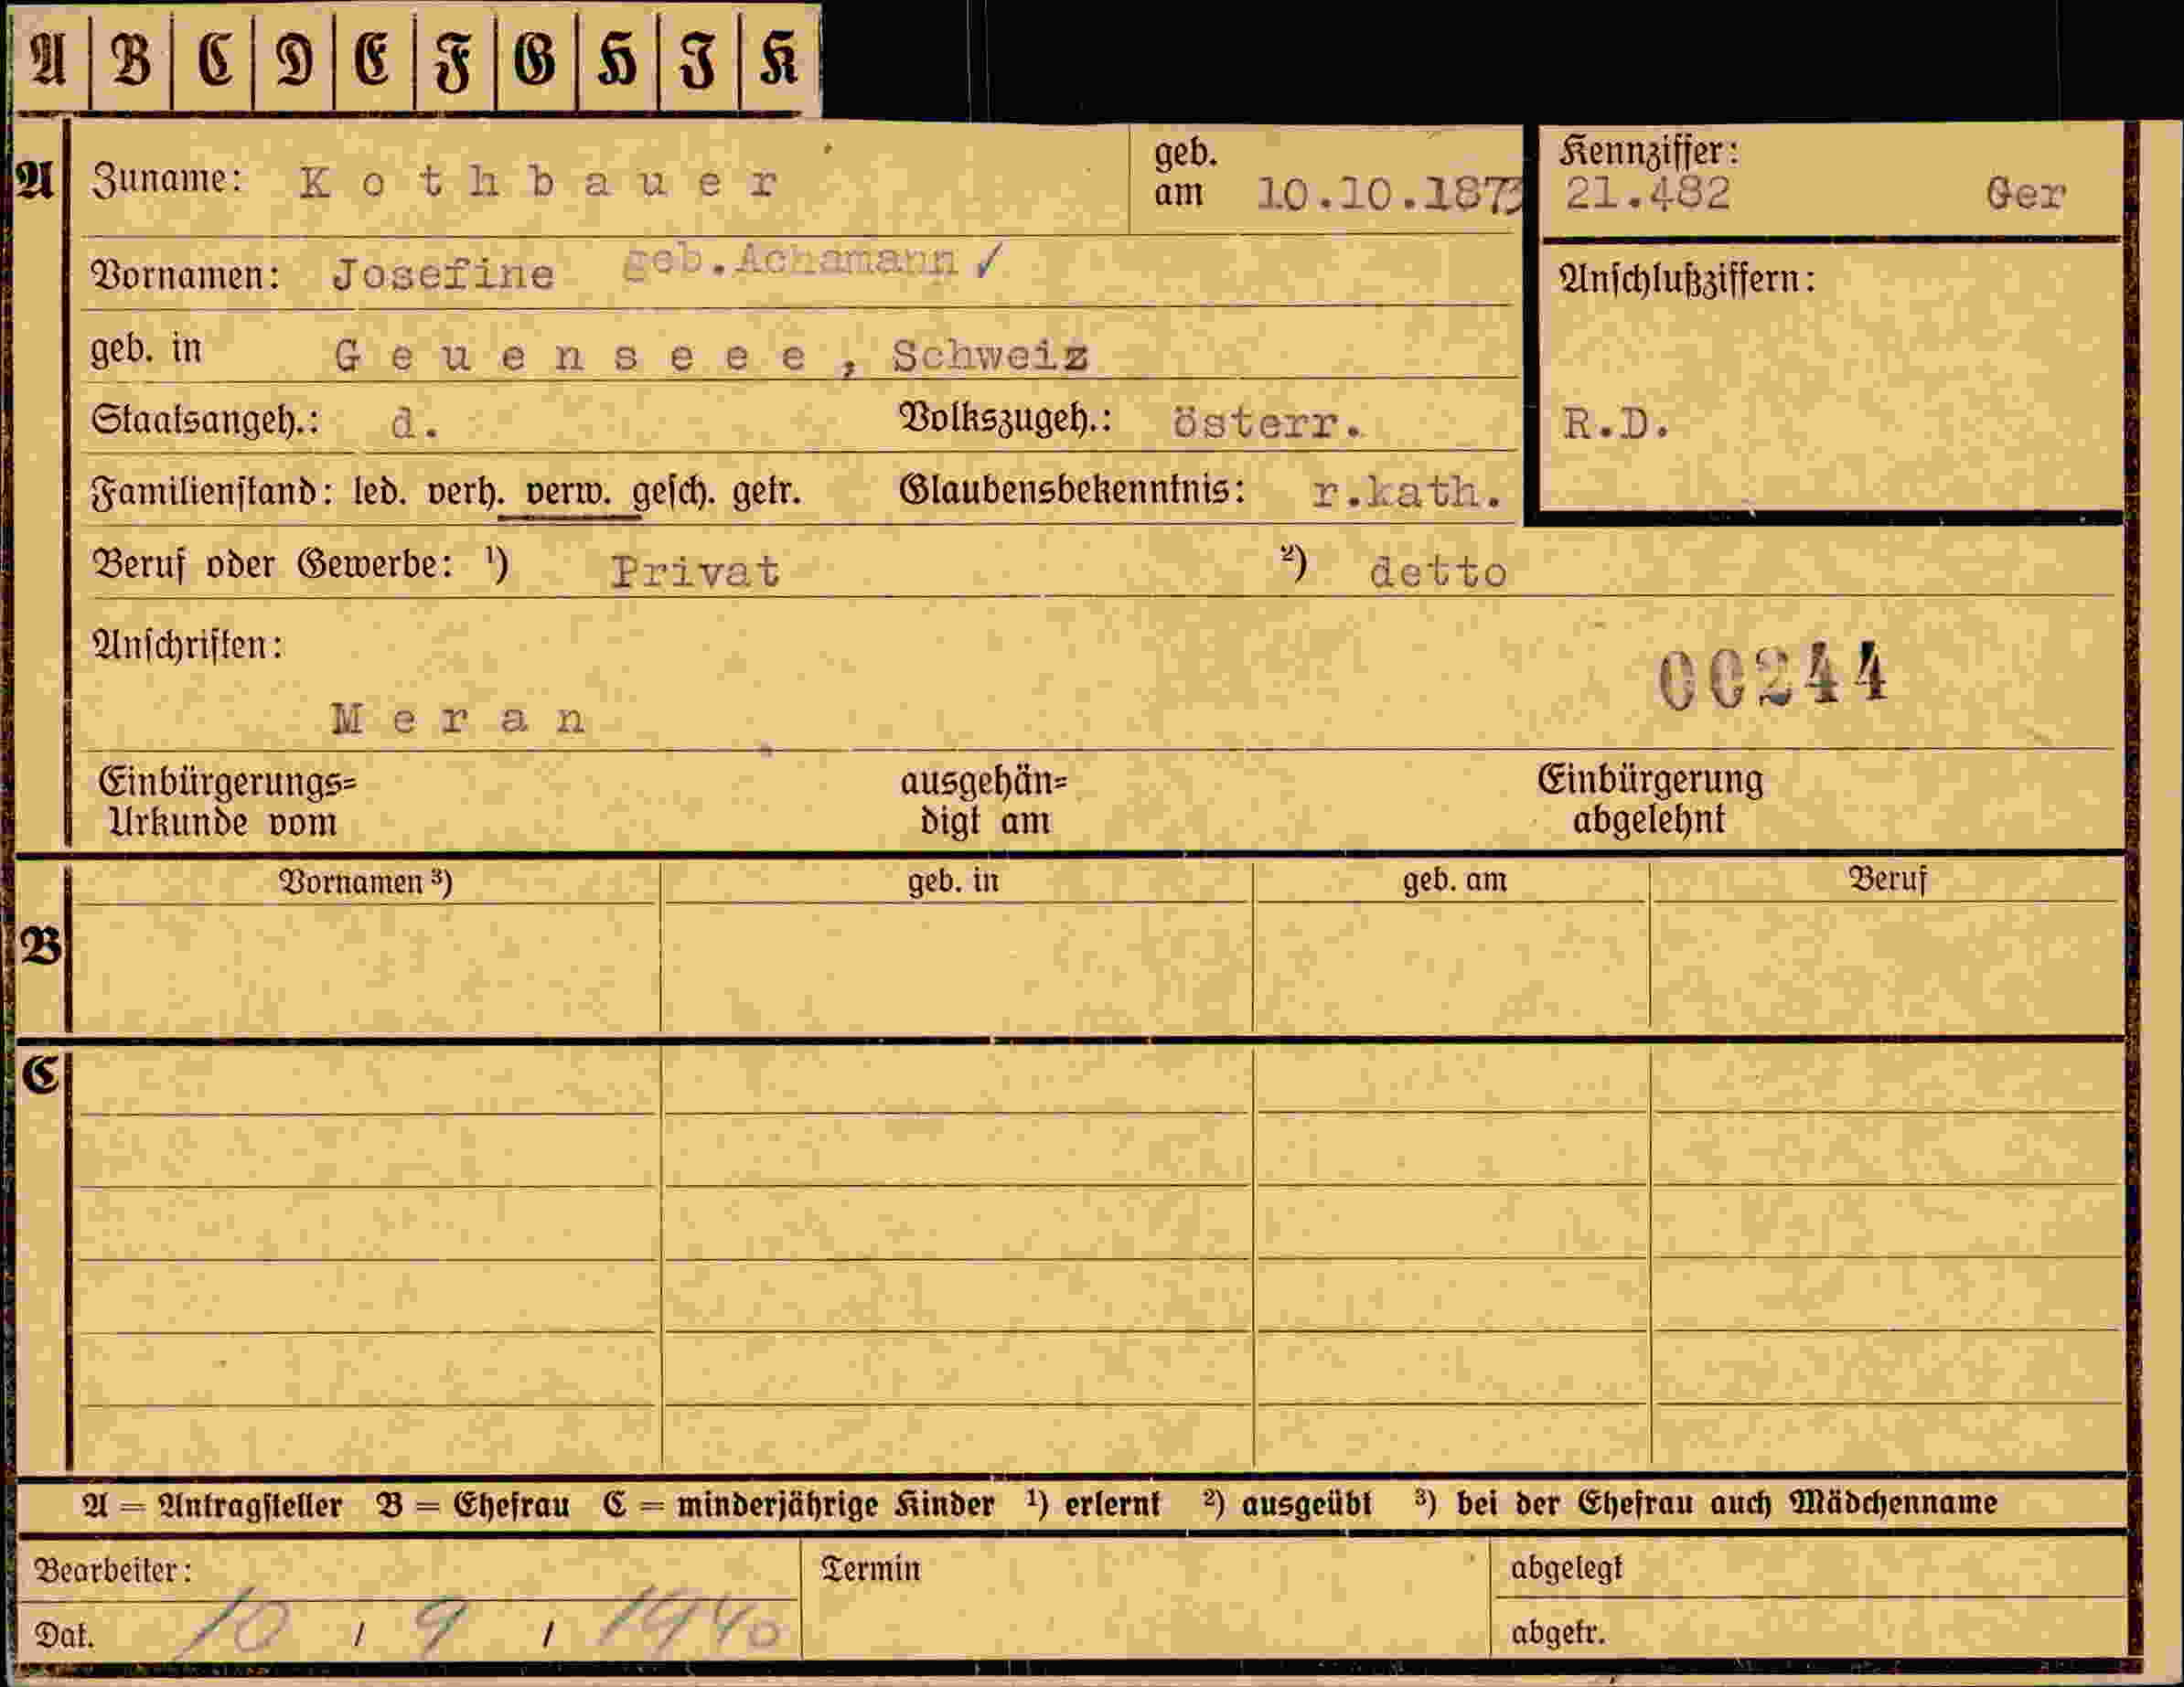 A B C D E F G H I K
A Zuname: Kothbauer geb. am 10.10.1873 Kennziffer: 21.482 Ger
Vornamen: Josefine geb.Achamann ✓ Anschlußziffern:
geb. in Geuenseee, Schweiz
Staatsangeh.: d. Volkszugeh.: österr. R.D.
Familienstand: led. verh. verw. gesch. getr. Glaubensbekenntnis: r.kath.
Beruf oder Gewerbe: ¹) Privat ²) detto
Anschriften:
00244
Meran
Einbürgerungs= ausgehän= Einbürgerung
Urkunde vom digt am abgelehnt
B Vornamen ³) geb. in geb. am Beruf
C
A = Antragsteller B = Ehefrau C = minderjährige Kinder ¹) erlernt ²) ausgeübt ³) bei der Ehefrau auch Mädchenname
Bearbeiter: Termin abgelegt
Dat. 10 / 9 / 1940 abgetr.